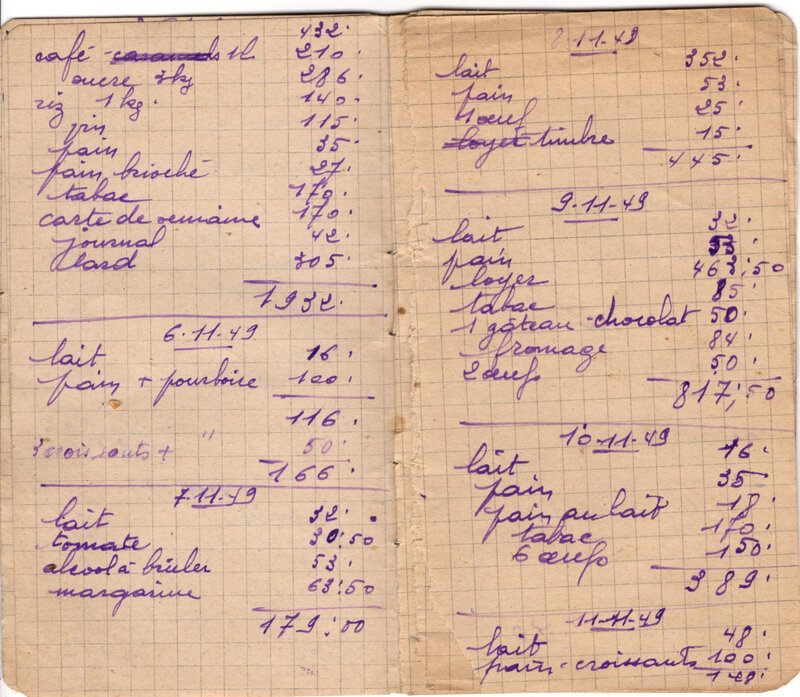 432.
café caramels 1l. 210.
sucre 3kg 286.
riz 1 kg. 140.
vin 115.
pain 35.
pain brioché 27.
tabac 170.
carte de semaine 170.
journal 42.
lard 305.
1932.
6-11-49
lait 16.
pain + pourboire 100.
116.
3 croissants + " 50.
166.
7-11-49
lait 32.
tomate 30:50
alcool à brûler 53.
margarine 63:50
179:00
8-11-49
lait 352.
pain 53.
1 œuf 25.
loyer timbre 15.
445.
9-11-49
lait 32.
pain 53.
loyer 463:50
tabac 85.
1 gâteau-chocolat 50.
fromage 84.
2 œufs 50.
817;50
10-11-49
lait 16.
pain 35.
pain au lait 18.
tabac 170.
6 œufs 150.
389.
11-11-49
lait 48.
pain-croissants 100.
148.